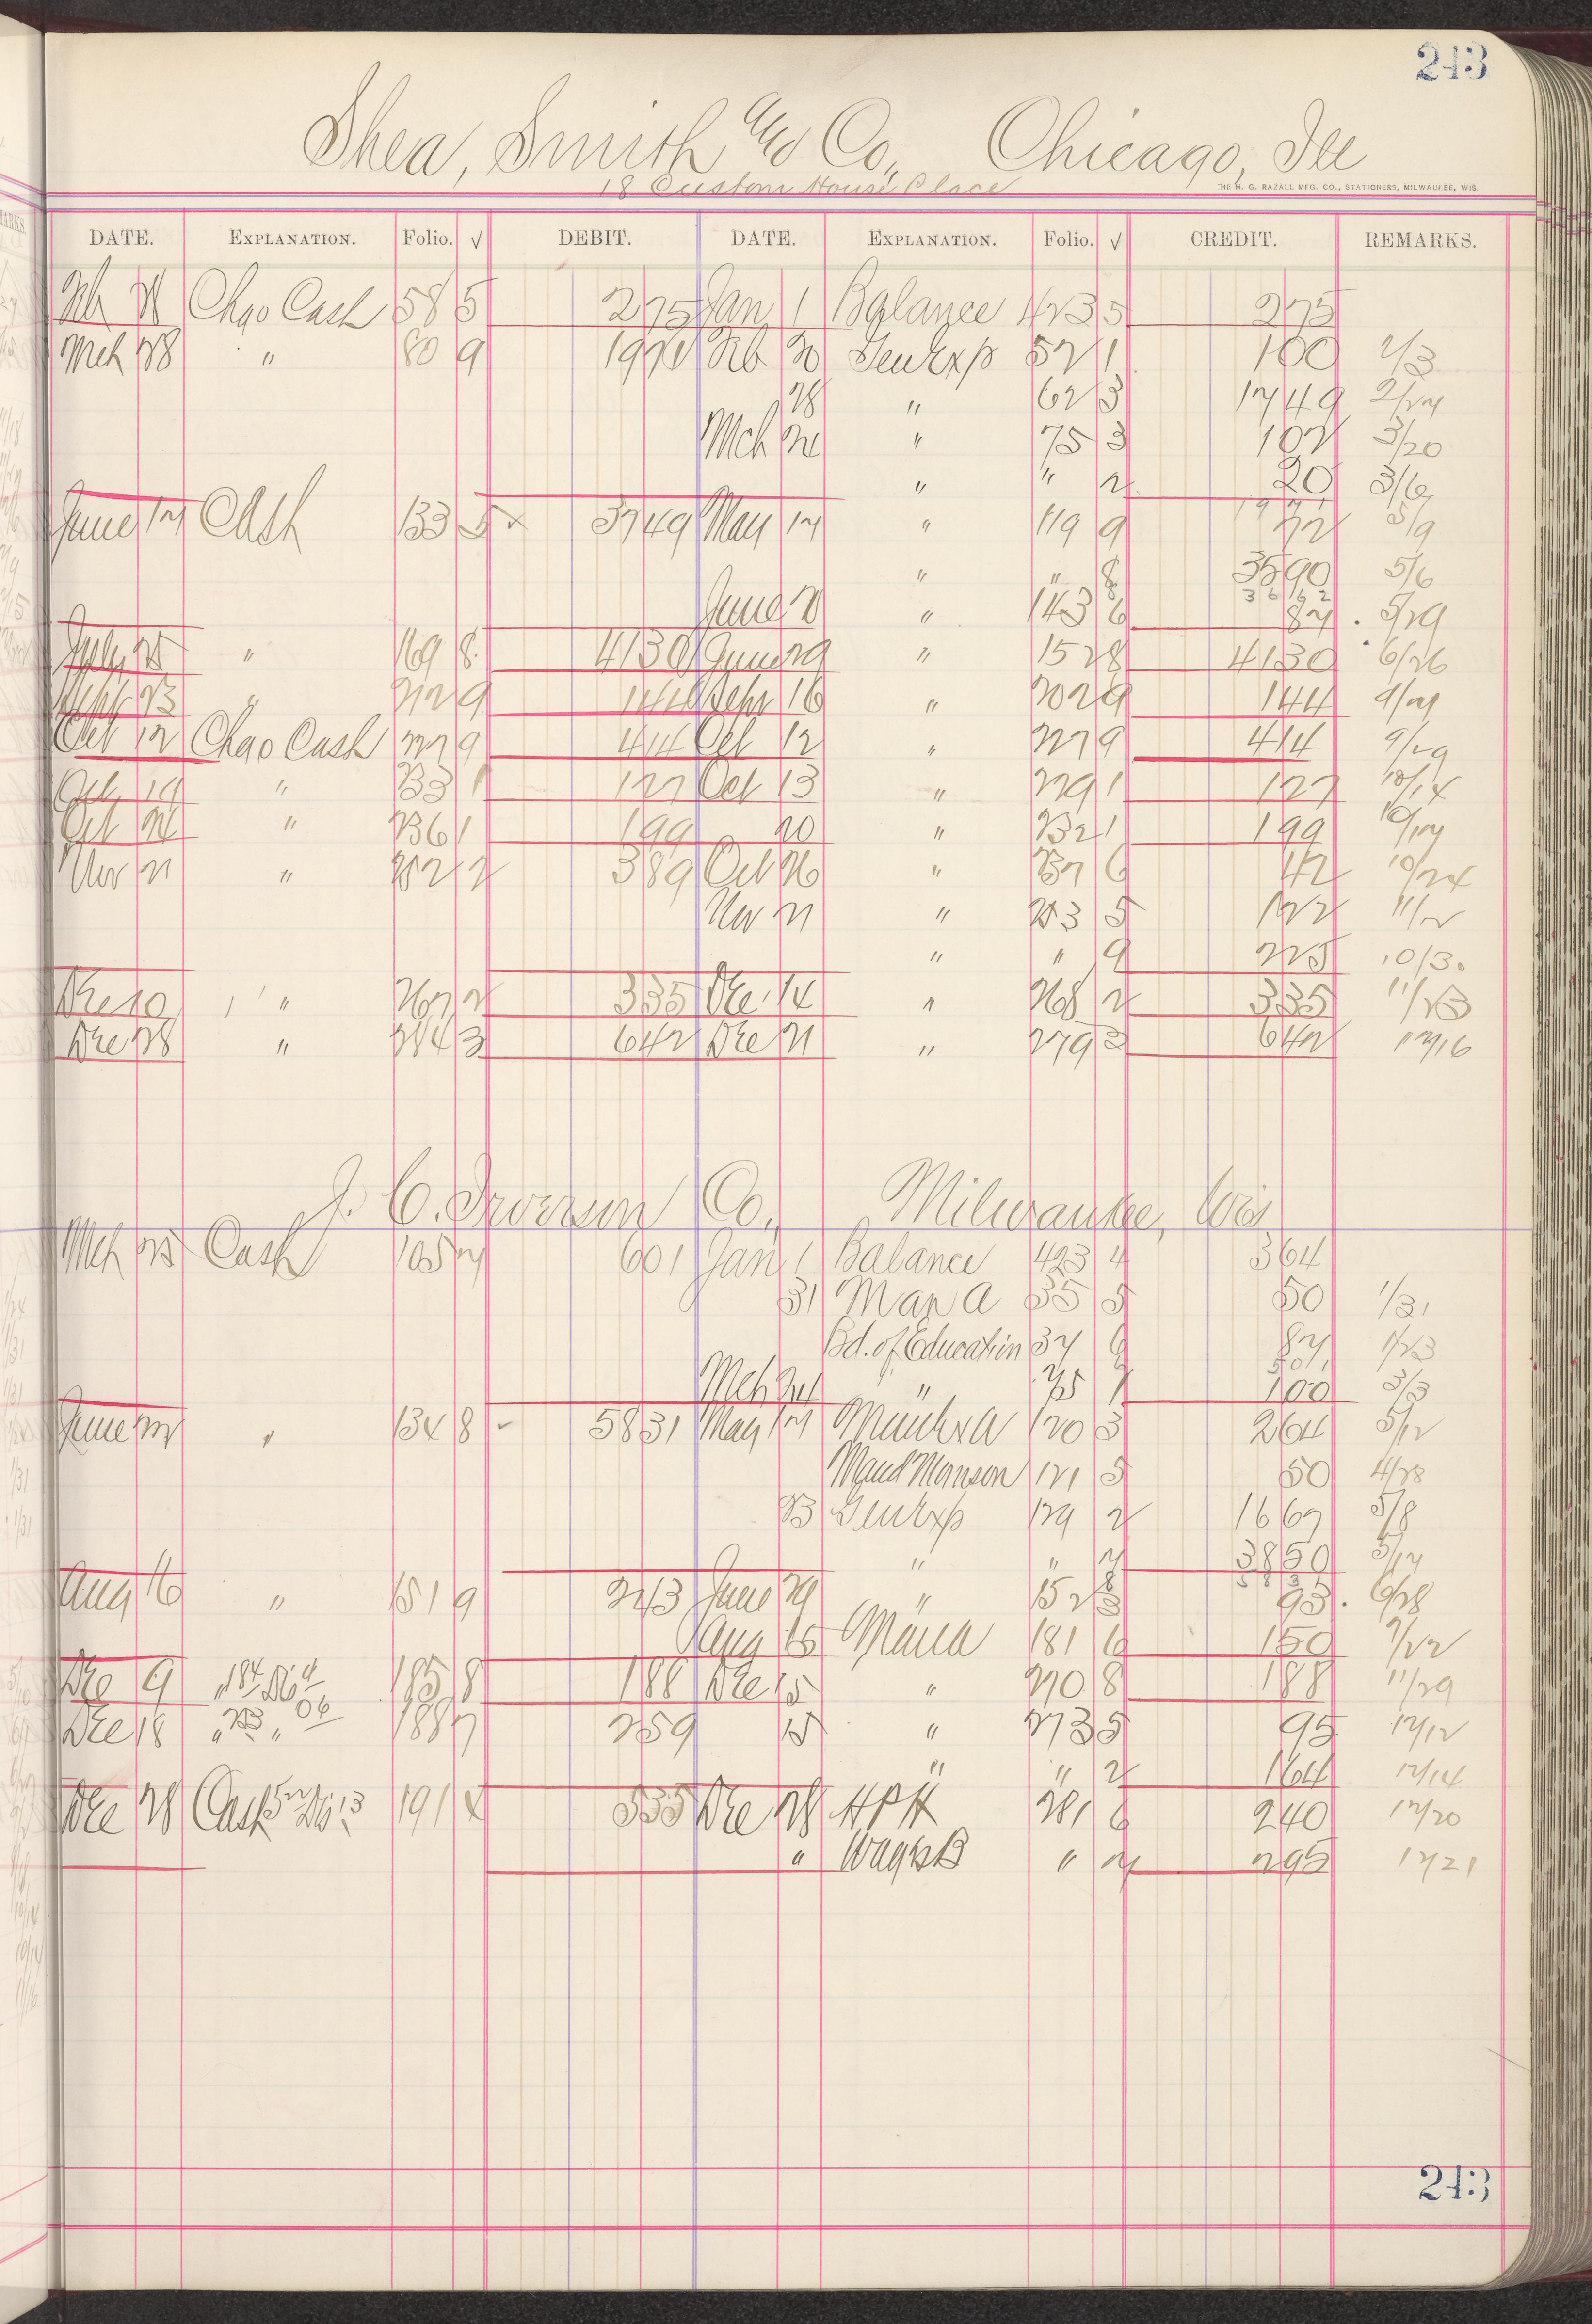 243
Shea, Smith and Co., Chicago, Ill
18 Custom House Place
THE H. G. RAZALL MFG. CO., STATIONERS, MILWAUKEE, WIS.
DATE. EXPLANATION. Folio. √ DEBIT. DATE. EXPLANATION. Folio. √ CREDIT. REMARKS.
Feb 28 Chgo Cash 58 5 275 Jan 1 Balance 423 5 275
Mch 28 " 80 9 1971 Feb 20 Gen Exp 52 1 100 2/3
28 " 62 3 1749 2/27
Mch 24 " 75 3 102 3/20
" " 2 20 3/6
1971
June 17 Cash 133 5 3749 May 17 " 119 9 72 5/9
" " 8 3590 5/6
3662
June 2 " 143 6 87 5/29
July 25 " 169 8 4130 June 29 " 152 8 4130 6/26
Sept 23 " 212 9 144 Sept 16 " 202 9 144 9/
Oct 12 Chgo Cash 227 9 414 Oct 12 " 227 9 414 9/29
Oct 19 " 233 1 127 Oct 13 " 229 1 127 10/14
Oct 24 " 236 1 199 20 " 232 1 199 10/17
Nov 21 " 252 2 389 Oct 26 " 237 6 42 10/24
Nov 21 " 253 5 122 11/2
" " 9 225 10/30
Dec 10 " 267 2 335 Dec 14 " 268 2 335 11/23
Dec 28 " 284 3 642 Dec 21 " 279 3 642 12/16
J. C. Iverson Co., Milwaukee, Wis
Mch 25 Cash 105 7 601 Jan 1 Balance 423 4 364
31 Man A 35 5 50 1/31
Bd. of Education 37 6 87 1/23
501
Mch 24 " 75 1 100 3/3
June 22 " 134 8 5831 May 17 120 3 264 5/12
Maud Monson 121 5 50 4/28
23 Gen Exp 129 2 1667 5/8
" " 7 3850 5/17
5831
Aug 16 " 151 9 243 June 29 " 152 8 93 6/28
Aug 15 181 6 150 7/22
Dec 9 " 185 8 188 Dec 15 " 270 8 188 11/29
Dec 18 " " 188 7 259 15 " 273 5 95 12/12
" " 2 164 12/14
Dec 28 Cash 191 4 535 Dec 28 HPH 281 6 240 12/20
" Wags B " 7 295 12/21
243